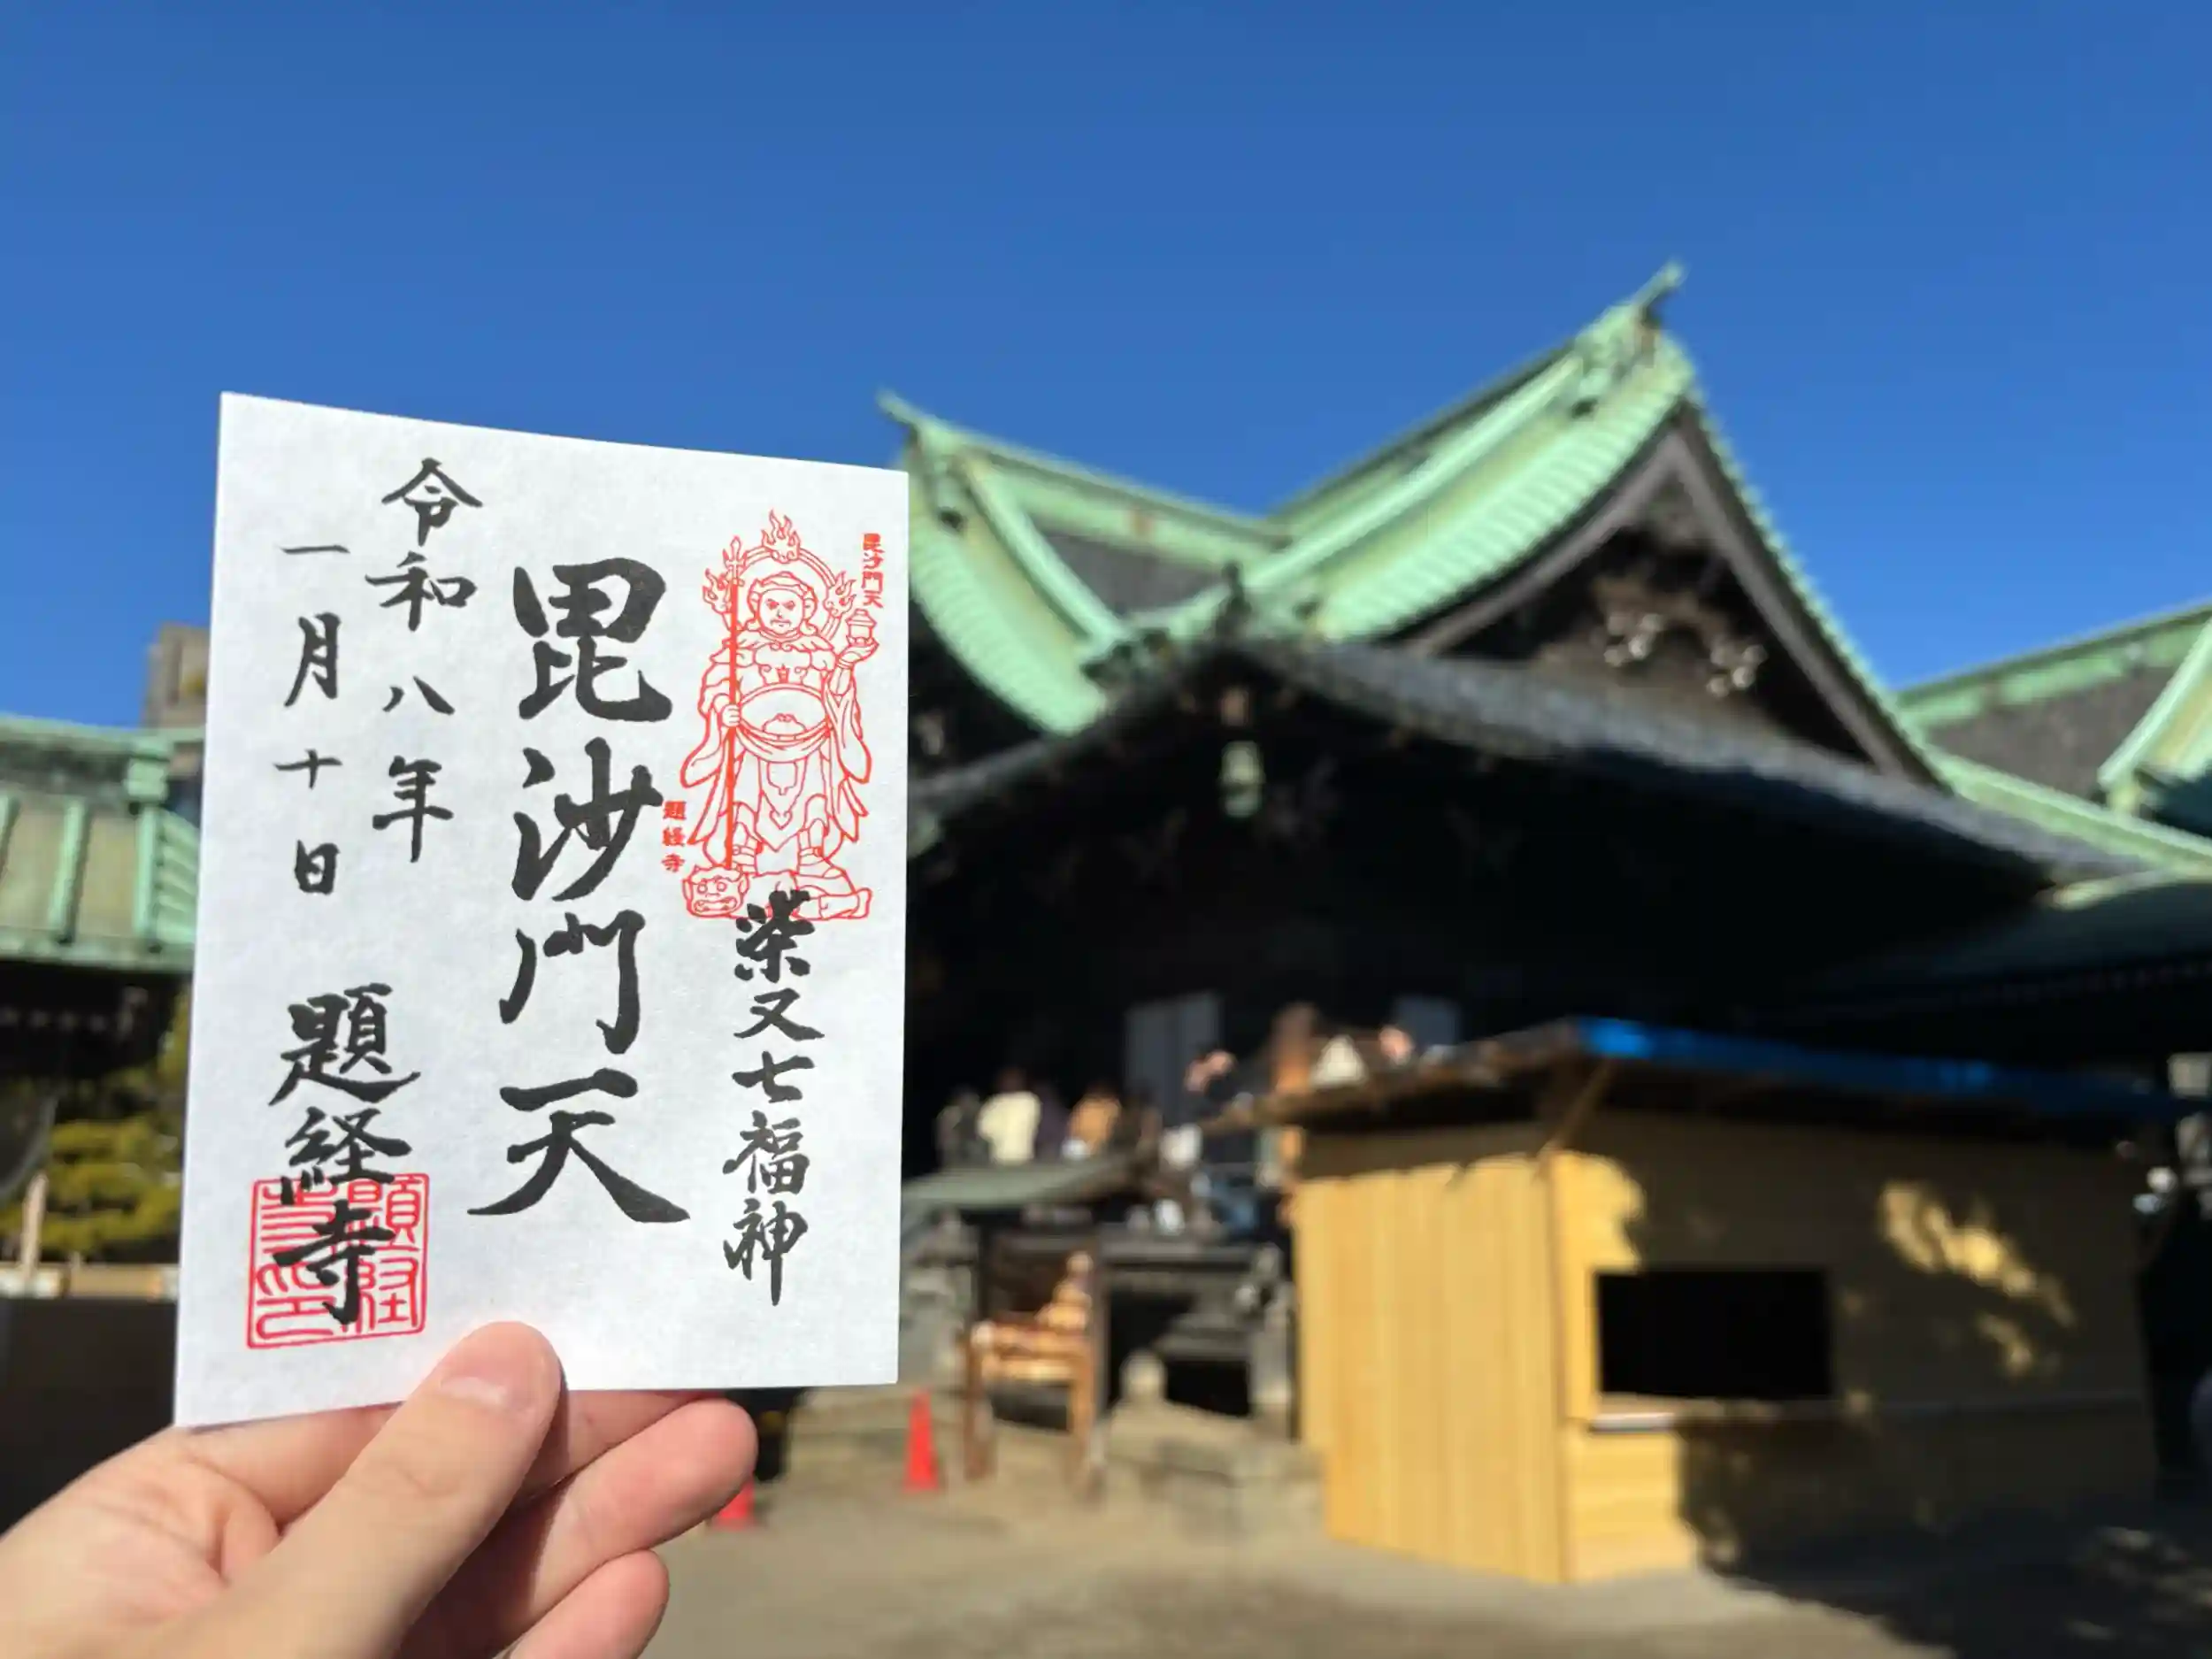 毘沙門天
題経寺
柴又七福神
毘沙門天
令和八年
一月十日
題経寺
題経寺印